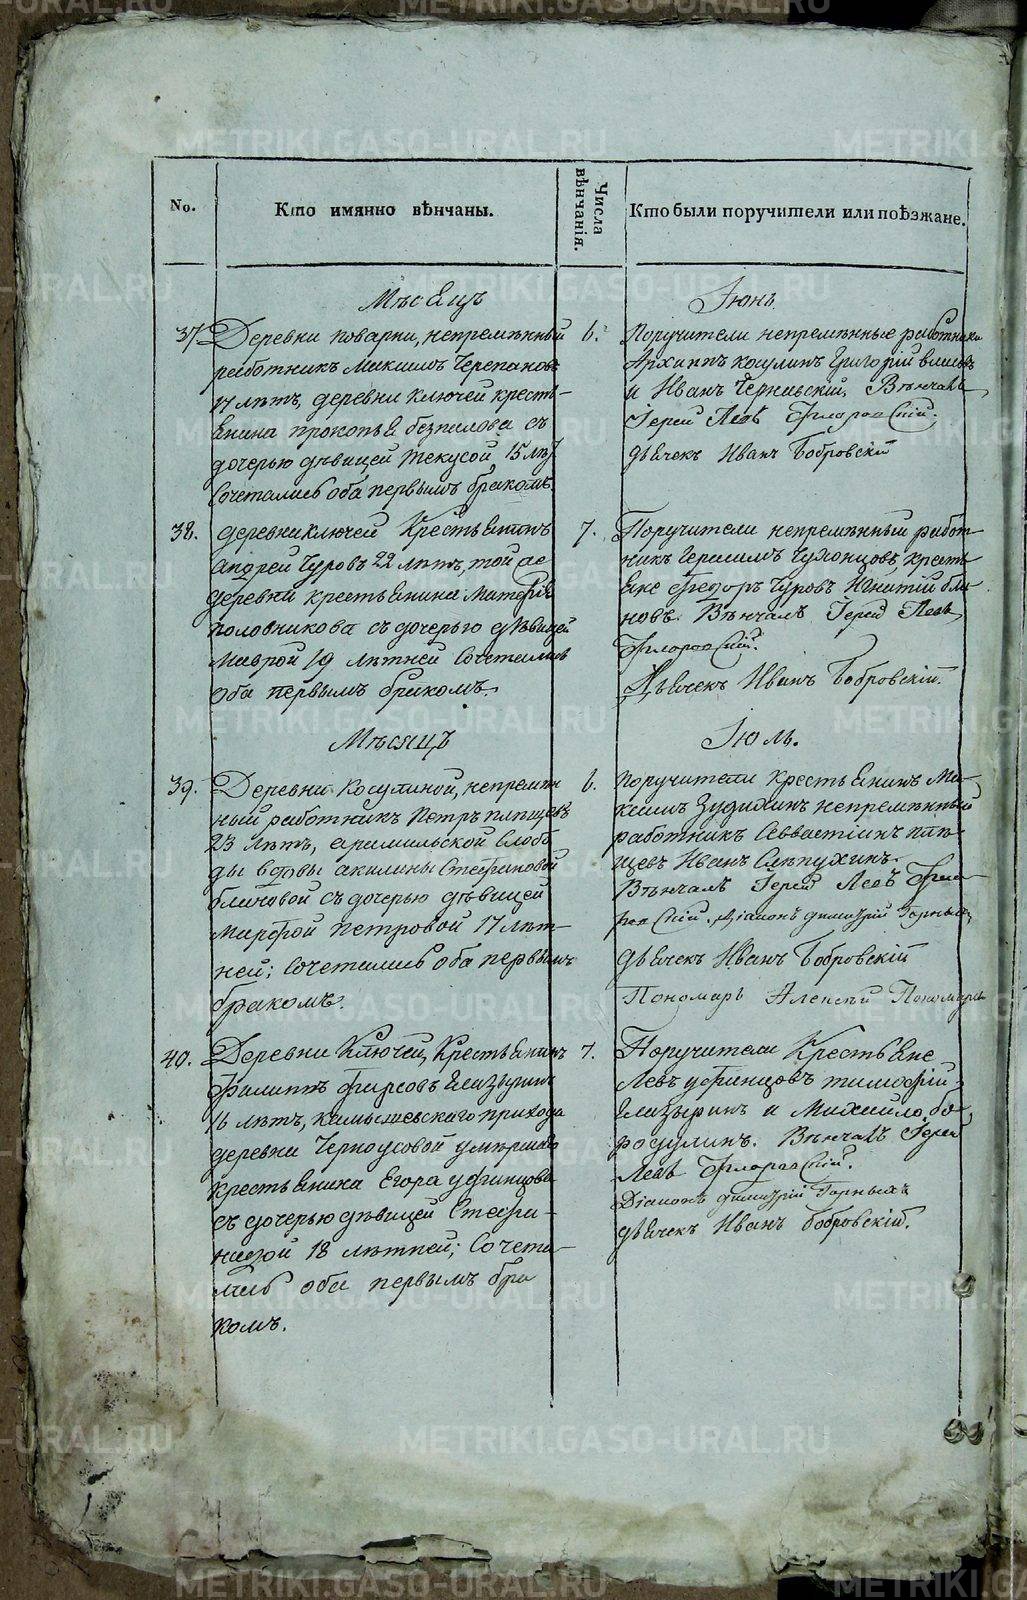 No.
Кто имянно вѣнчаны.
Числа вѣнчанія.
Кто были поручители или поѣзжане.
Мѣсяцъ
Іюнь
37
Деревни поварни, непремѣнный
работникъ Максимъ Черепановъ
17 лѣтъ, деревни ключей кресть-
янина прокопья безпалова съ
дочерью дѣвицей Текусой, 15 лѣт
сочетались оба первымъ бракомъ.
6.
Поручители непремѣнные работники
Архиппъ косулинъ Григорій
и Иванъ Чернавскій, Вѣнчалъ
Іерей Левъ Флоровскій.
дьячекъ Иванъ Бобровскій
38.
деревни ключей Крестьянинъ
андрей Чуровъ 22 лѣтъ, той же
деревни крестьянина Матфія
половникова съ дочерью дѣвицей
Маврой 19 лѣтней сочетались
оба первымъ бракомъ.
7.
Поручители непремѣнный работ-
никъ Герасимъ Чухонцовъ, кресть
яне Феодоръ Чуровъ Игнатій бли-
новъ. Вѣнчалъ Іерей Левъ
Флоровскій.
Дьячекъ Иванъ Бобровскій.
Мѣсяцъ
Іюль.
39.
Деревни Косулиной, непремѣн
ный работникъ Петръ
23 лѣтъ, арамильской слобо
ды вдовы акилины Стефановой
блиновой съ дочерью дѣвицей
Марфой Петровой 17 лѣт-
ней; сочетались оба первымъ
бракомъ.
6.
поручители крестьянинъ Ма-
ксимъ Зудихинъ непремѣнный
работникъ Севвастіянъ
Иванъ Слѣпухинъ.
Вѣнчалъ Іерей Левъ Фло-
ровскій. Діаконъ димитрій Горныхъ
дьячекъ Иванъ Бобровскій
Пономарь Алексѣй Пономаревъ
40.
Деревни Ключей, Крестьянинъ
Филиппъ Фирсовъ Елизырин
16 лѣтъ, камышевскаго прихода
деревни Черноусовой умершаго
крестьянина Егора уфинцова
съ дочерью дѣвицей Стефа-
нидой 18 лѣтней; Сочета-
лись оба первымъ бра
комъ.
7.
Поручители Крестьяне
Левъ уфинцовъ тимофій
Елизыринъ и Михайло бо-
росулинъ. Вѣнчалъ Іерей
Левъ Флоровскій.
Діаконъ димитрій Горныхъ
дьячекъ Иванъ бобровскій.
METRIKI.GASO-URAL.RU